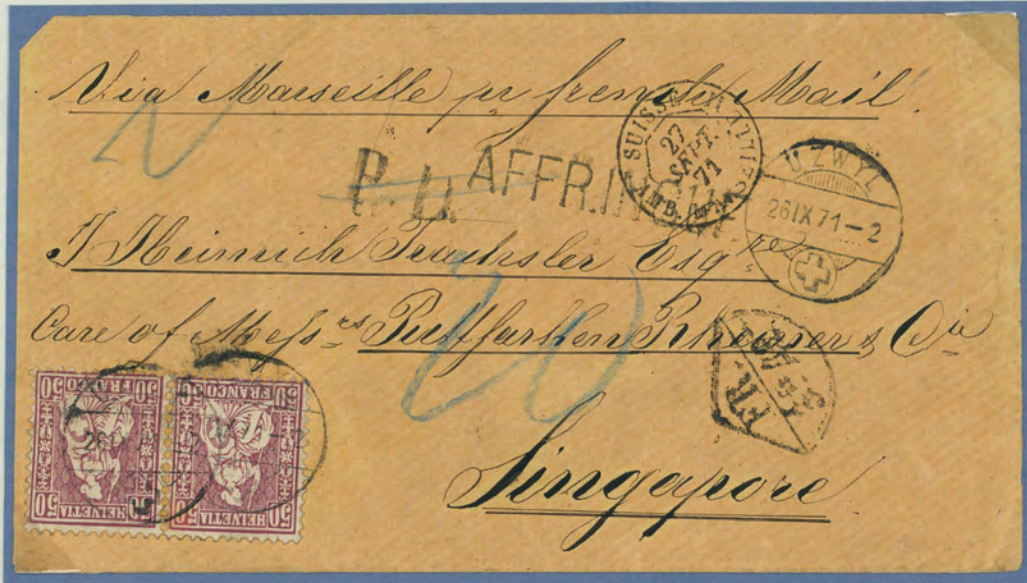 Via Marseille pr french Mail
P.D. AFFR.IN
SUISSE AMB. MARSEILLE
27
SEPT.
71
UZWYL
26 IX 71–2
J Heinrich Trachsler Esqre
Care of Messrs Puttfarken Rheiner & Cie
20
Singapore
50 50
FRANCO
HELVETIA
50 50
50 50
FRANCO
HELVETIA
50 50